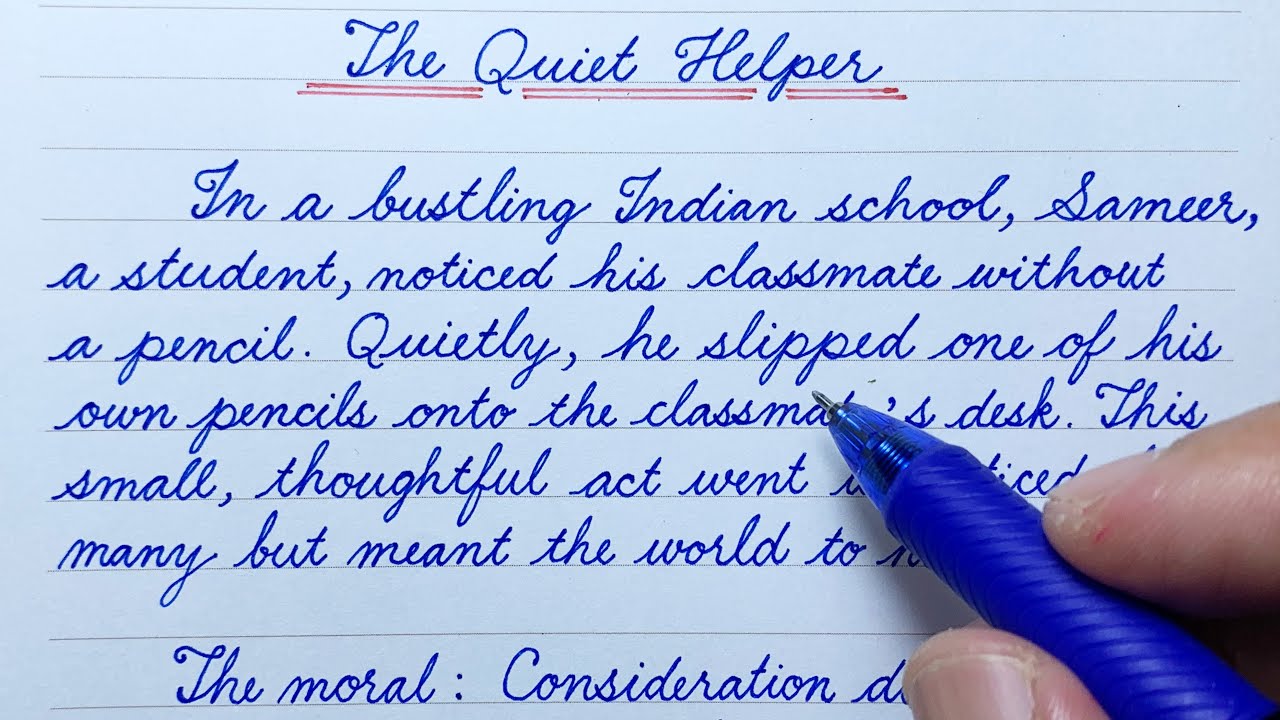 The Quiet Helper
In a bustling Indian school, Sameer,
a student, noticed his classmate without
a pencil. Quietly, he slipped one of his
own pencils onto the classmate's desk. This
small, thoughtful act went
many but meant the world to
The moral: Consideration